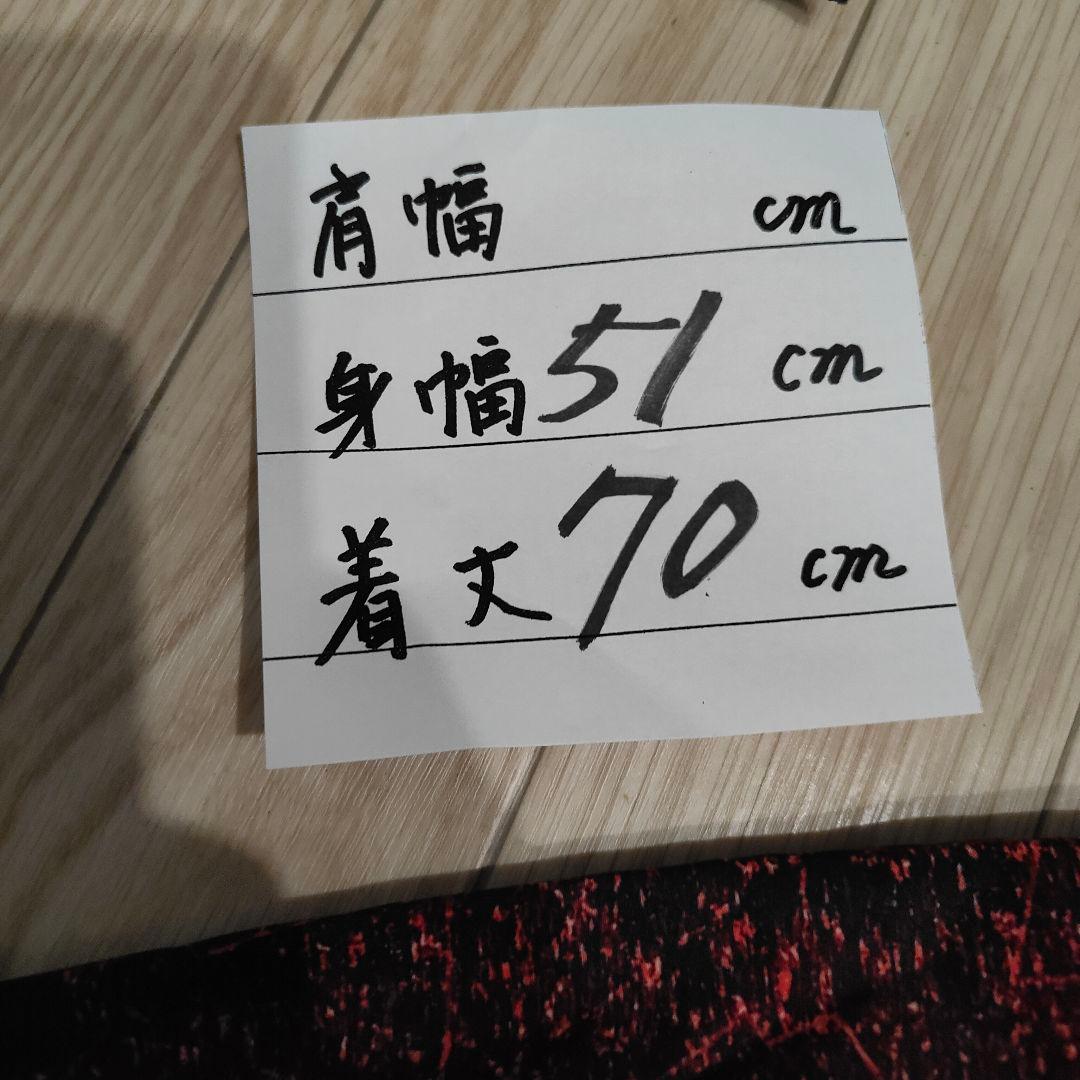 肩幅 cm
身幅 51 cm
着丈 70 cm